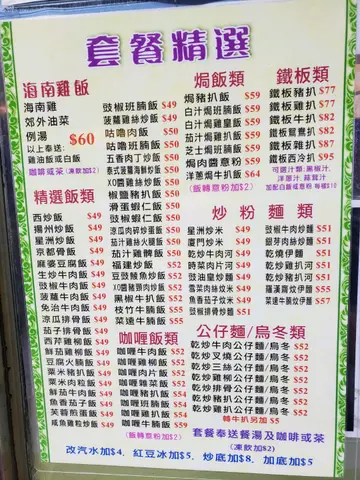 套餐精選
海南雞飯
海南雞
郊外油菜
例湯 $60
以上奉送:
雞油飯或白飯
咖啡或茶(凍飲加$2)
精選飯類
西炒飯 $49
揚州炒飯 $49
星洲炒飯 $49
京都骨飯 $49
麻婆豆腐飯 $49
生炒牛肉飯 $49
豉椒牛肉飯 $49
菠蘿牛肉飯 $49
免治牛肉飯 $49
涼瓜排骨飯 $49
茄子排骨飯 $49
西芹雞柳飯 $49
鮮茄雞柳飯 $49
豆腐班腩飯 $49
粟米班腩飯 $49
粟米肉粒飯 $49
鮮茄牛肉飯 $49
魚香茄子飯 $49
芙蓉煎蛋飯 $49
咸魚雞粒炒飯 $49
豉椒班腩飯 $49
菠蘿雞絲炒飯 $49
咕嚕肉飯 $50
咕嚕班腩飯 $50
五香肉丁炒飯 $50
泰式菠蘿海鮮炒飯 $50
XO醬雞絲炒飯 $50
椒鹽豬扒飯 $50
滑蛋蝦仁飯 $50
豉椒蝦仁飯 $50
涼瓜肉碎炒蛋飯 $50
茄汁雞絲火腿飯 $50
茄汁雞髀飯 $50
福建炒飯 $52
豆豉鯪魚炒飯 $52
XO豬頸肉炒飯 $52
黑椒牛扒飯 $52
枝竹牛腩飯 $51
菜遠牛腩飯 $51
咖喱飯類
咖喱牛肉飯 $52
咖喱雞柳飯 $52
咖喱肉片飯 $52
咖喱雜菜飯 $52
咖喱豬扒飯 $52
咖喱雞扒飯 $52
咖喱牛腩飯 $52
(飯轉意粉加$2)
焗飯類
焗豬扒飯 $59
白汁焗班腩飯 $59
白汁焗雞皇飯 $59
茄汁焗雞扒飯 $59
芝士焗班腩飯 $59
焗肉醬意粉 $59
洋蔥焗牛扒飯 $64
(飯轉意粉加$2)
鐵板類
鐵板豬扒 $77
鐵板雞扒 $77
鐵板牛扒 $82
鐵板鴛鴦扒 $82
鐵板雜扒 $87
鐵板西冷扒 $95
可選汁類:黑椒汁、
洋蔥汁、蒜茸汁
加配白飯或意粉 每樣$10
炒粉麵類
星洲炒米 $49
廈門炒米 $49
乾炒牛肉河 $49
時菜肉片河 $49
豉油皇炒麵 $49
雪菜肉絲炆米 $49
魚香茄子炆米 $49
豉椒排骨炒麵 $51
豉椒牛肉炒麵 $51
銀芽肉絲炒麵 $51
乾燒伊麵 $51
乾炒雞扒河 $51
乾炒豬扒河 $51
羅漢齋炆伊麵 $55
菜遠牛腩炆伊麵 $57
公仔麵/烏冬類
乾炒牛肉公仔麵/烏冬 $52
乾炒叉燒公仔麵/烏冬 $52
乾炒三絲公仔麵/烏冬 $52
乾炒雞柳公仔麵/烏冬 $52
乾炒排骨公仔麵/烏冬 $52
乾炒豬扒公仔麵/烏冬 $52
乾炒雞扒公仔麵/烏冬 $52
轉牛扒另加 $5
套餐奉送餐湯及咖啡或茶
(凍飲加$2)
改汽水加$4、紅豆冰加$5、炒底加$8、加底加$5